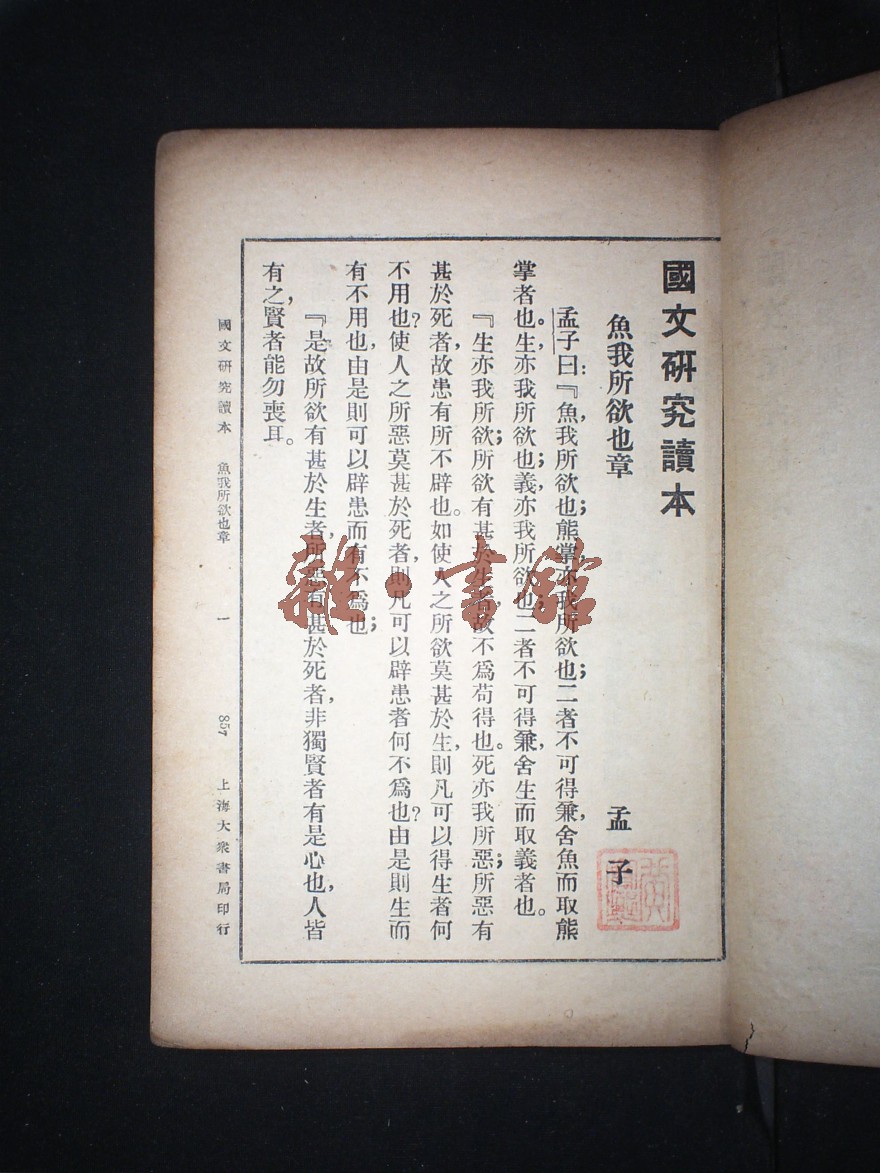 國文研究讀本
魚我所欲也章
孟子
孟子曰：『魚，我所欲也；熊掌亦我所欲也；二者不可得兼，舍魚而取熊
掌者也。生，亦我所欲也；義，亦我所欲也；二者不可得兼，舍生而取義者也。
『生亦我所欲；所欲有甚於生者，故不爲苟得也。死亦我所惡；所惡有
甚於死者，故患有所不辟也。如使人之所欲莫甚於生，則凡可以得生者何
不用也？使人之所惡莫甚於死者，則凡可以辟患者何不爲也？由是則生而
有不用也，由是則可以辟患而有不爲也；
『是故所欲有甚於生者，所惡有甚於死者，非獨賢者有是心也，人皆
有之，賢者能勿喪耳。
國文研究讀本　魚我所欲也章　一　857　上海大衆書局印行
雜·書館